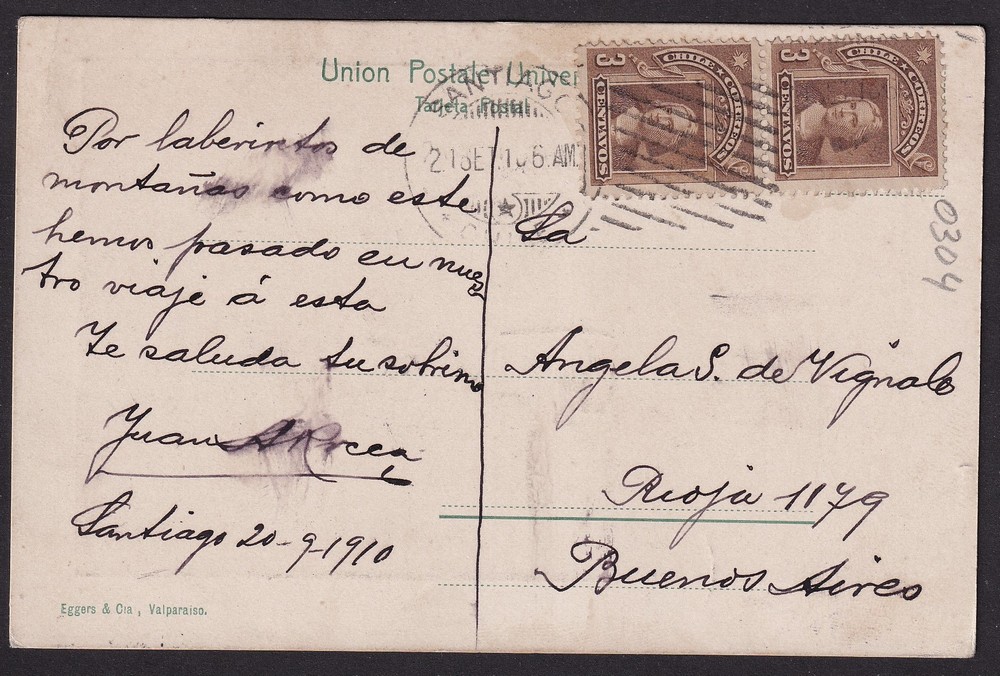 Union Postale Univer
Tarjeta Postal
SANTIAGO
21 SET. 10 6 AM
3 CENTAVOS
CHILE CORREOS
3 CENTAVOS
CHILE CORREOS
0304
Por laberintos de
montañas como este
hemos pasado en nues
tro viaje á esta
Te saluda tu sobrino
Juan
Santiago 20-9-1910
Sa
Angela S. de Vignale
Rioja 1179
Buenos Aires
Eggers & Cia, Valparaiso.